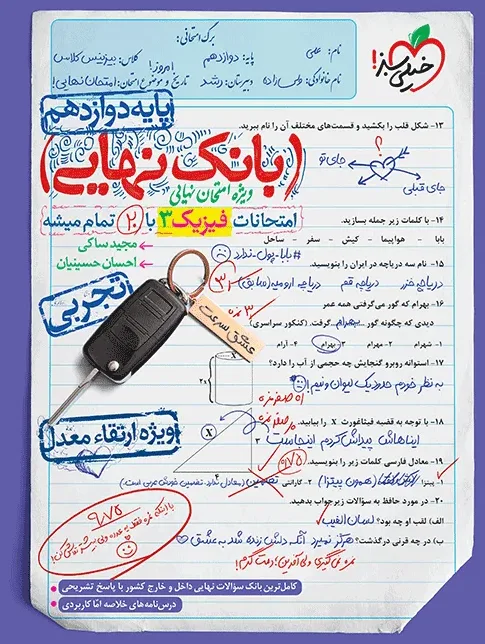 خیلی سبز!
برگ امتحانی:
نام: علی
پایه: دوازدهم
کلاس: بیزینس کلاس
نام خانوادگی:
دبیرستان: رشد
تاریخ و موضوع امتحان: امتحان نهایی!
امروز!
پایه دوازدهم
(بانک نهایی)
ویژه امتحان نهایی
امتحانات فیزیک ۳ با ۲۰ تمام میشه
مجید ساکی
احسان حسینیان
تجربی
ویژه ارتقاء معدل
عشق سرعت
۱۳- شکل قلب را بکشید و قسمت‌های مختلف آن را نام ببرید.
جای تو
جای قبلی
۱۴- با کلمات زیر جمله بسازید.
بابا - هواپیما - کیش - سفر - ساحل
#بابا-پول-ندارد
۱۵- نام سه دریاچه در ایران را بنویسید.
دریاچه خزر دریاچه قم دریاچه ارومیه (سابق)
۱۶- بهرام که گور می‌گرفتی همه عمر
دیدی که چگونه گور بهرام گرفت. (کنکور سراسری)
۱- شهرام ۲- مهرام ۳- بهرام ۴- آرام
۱۷- استوانه روبرو گنجایش چه حجمی از آب را دارد؟
به نظر خودم حدود یک لیوان و نیم!
۱۸- با توجه به قضیه فیثاغورث X را بیابید.
ایناهاش پیداش کردم اینجاست
X
۳
۴
۱۹- معادل فارسی کلمات زیر را بنویسید.
۰/۷۵
۱- پیتزا (همون پیتزا) ۲- گارانتی تضمین (معادل ندارد. تضمین خودش عربی است)
۲۰- در مورد حافظ به سؤالات زیر جواب بدهید.
الف) لقب او چه بود؟ لسان الغیب
ب) در چه قرنی درگذشت؟ هرگز نمیرد آنکه دلش زنده شد به عشق
نمره نمی‌گیری ولی آفرین؛ دمت گرم!
۹/۷۵
کامل‌ترین بانک سؤالات نهایی داخل و خارج کشور با پاسخ تشریحی
درس‌نامه‌های خلاصه امّا کاربردی